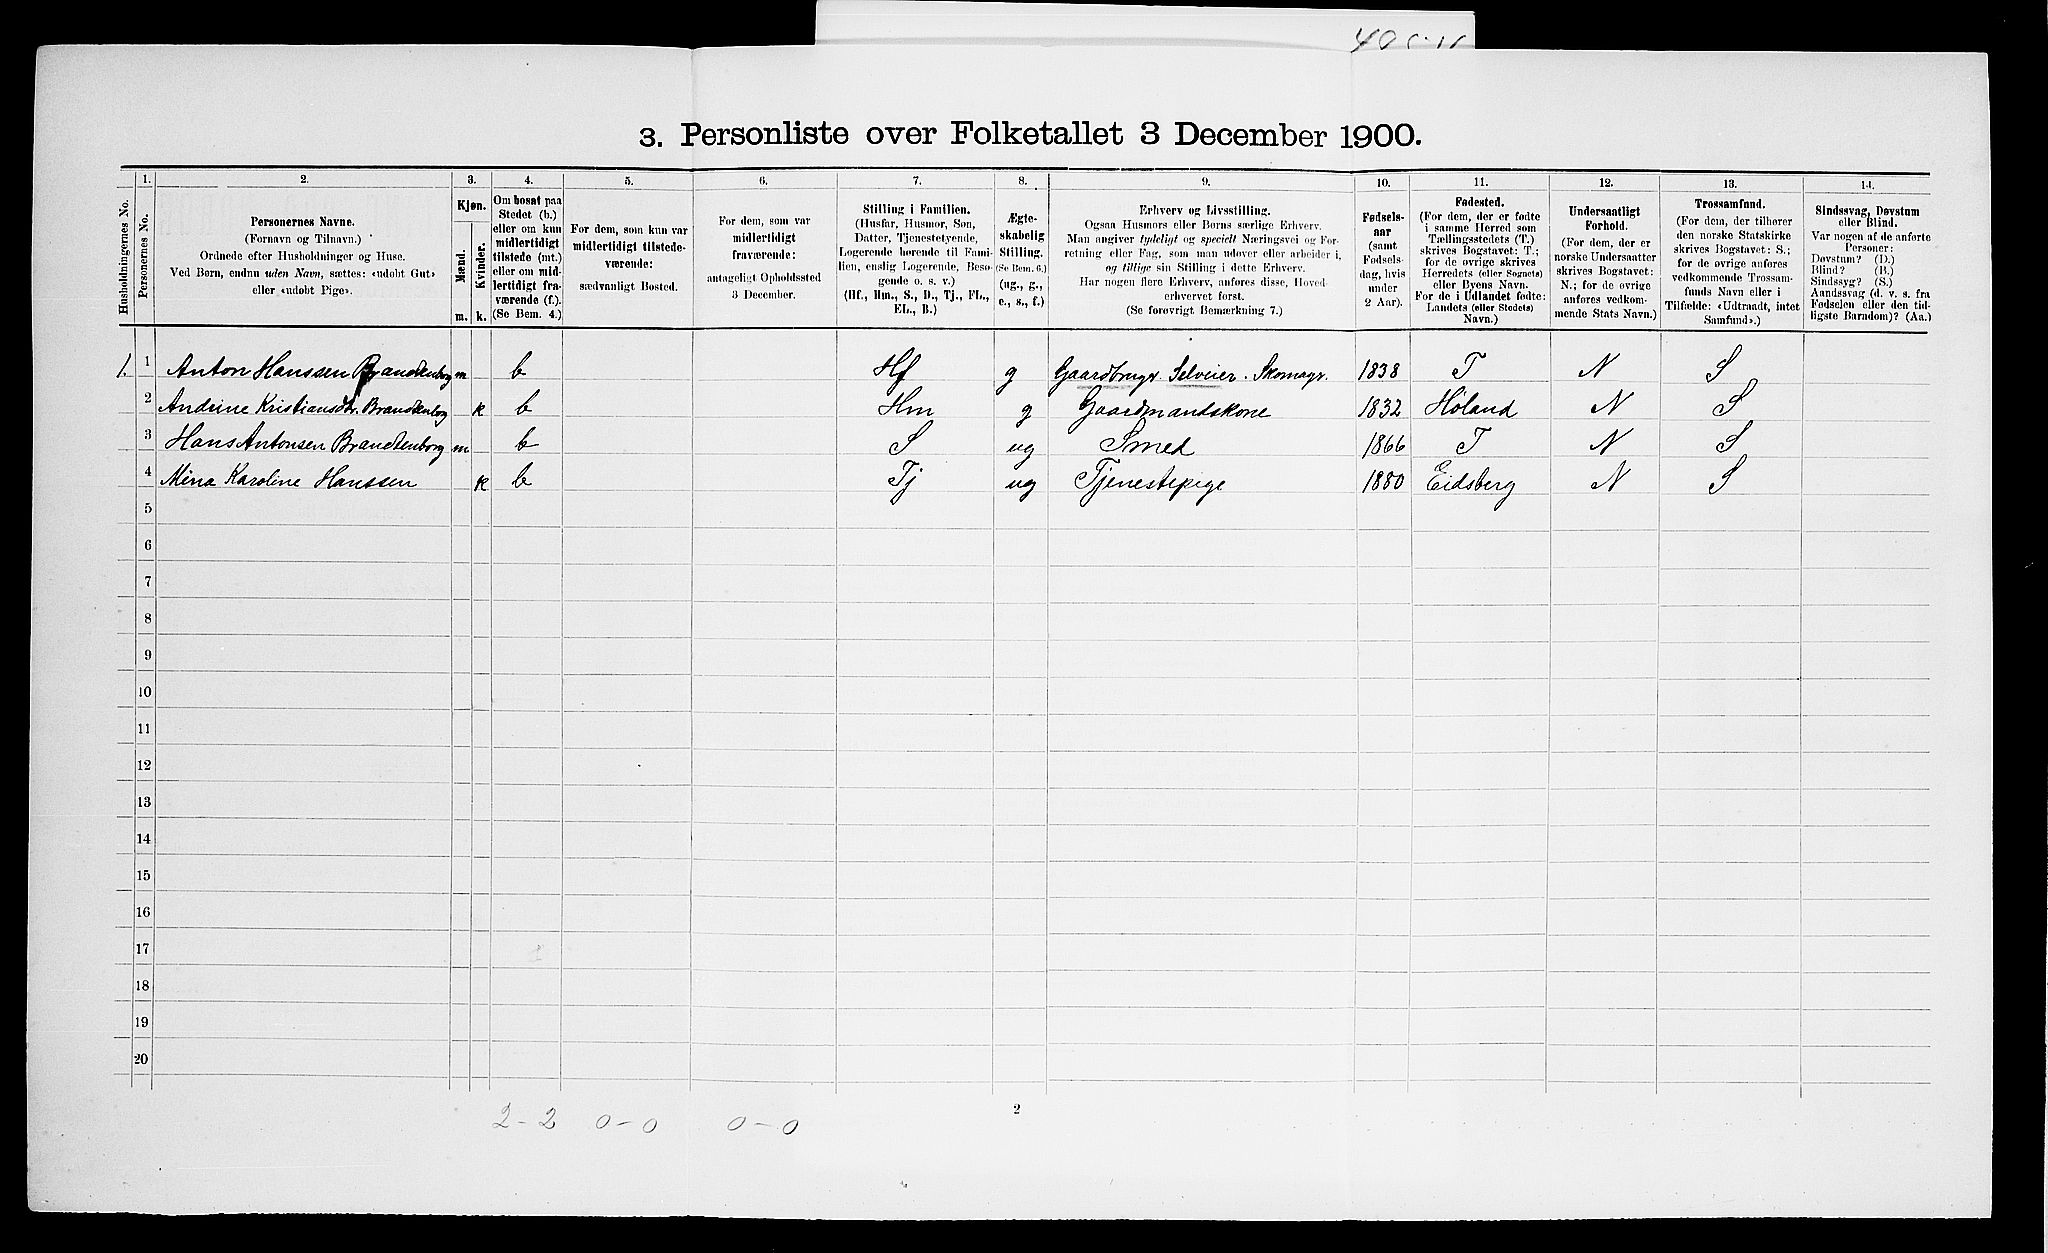 3. Personliste over Folketallet 3 December 1900.
1. 2. 3. 4. 5. 6. 7. 8. 9. 10. 11. 12. 13. 14.
Husholdningernes No.
Personernes No.
Personernes Navne.
(Fornavn og Tilnavn.)
Ordnede efter Husholdninger og Huse.
Ved Børn, endnu uden Navn, sættes: «udøbt Gut»
eller «udøbt Pige».
Kjøn.
Mænd.
Kvinder.
m. k.
Om bosat paa
Stedet (b.)
eller om kun
midlertidigt
tilstede (mt.)
eller om mid-
lertidigt fra-
værende (f.)
(Se Bem. 4.)
For dem, som kun var
midlertidigt tilstede-
værende:
sædvanligt Bosted.
For dem, som var
midlertidigt
fraværende:
antageligt Opholdssted
3 December.
Stilling i Familien.
(Husfar, Husmor, Søn,
Datter, Tjenestetyende,
Logerende hørende til Fami-
lien, enslig Logerende, Besø-
gende o. s. v.)
(Hf., Hm., S., D., Tj., FL.,
EL., B.)
Ægte-
skabelig
Stilling.
(Se Bem. 6.)
(ug., g.,
e., s., f.)
Erhverv og Livsstilling.
Ogsaa Husmors eller Børns særlige Erhverv.
Man angiver tydeligt og specielt Næringsvei og For-
retning eller Fag, som man udøver eller arbeider i,
og tillige sin Stilling i dette Erhverv.
Har nogen flere Erhverv, anføres disse, Hoved-
erhvervet først.
(Se forøvrigt Bemærkning 7.)
Fødsels-
aar
(samt
Fødsels-
dag, hvis
under
2 Aar).
Fødested.
(For dem, der er fødte
i samme Herred som
Tællingsstedets (T.)
skrives Bogstavet: T.;
for de øvrige skrives
Herredets (eller Sognets)
eller Byens Navn.
For de i Udlandet fødte:
Landets (eller Stedets)
Navn.)
Undersaatligt
Forhold.
(For dem, der er
norske Undersaatter
skrives Bogstavet:
N.; for de øvrige
anføres vedkom-
mende Stats Navn.)
Trossamfund.
(For dem, der tilhører
den norske Statskirke
skrives Bogstavet: S.;
for de øvrige anføres
vedkommende Trossam-
funds Navn eller i
Tilfælde: «Udtraadt, intet
Samfund».)
Sindssvag, Døvstum
eller Blind.
Var nogen af de anførte
Personer:
Døvstum? (D.)
Blind? (B.)
Sindssyg? (S.)
Aandssvag (d. v. s. fra
Fødselen eller den tid-
ligste Barndom)? (Aa.)
1. 1 Anton Hanssen Brandtenborg m b Hf g Gaardbruger Selveier. Skomagr. 1838 T N S
2 Andrine Kristiansdtr. Brandtenborg k b Hm g Gaardmandskone 1832 Høland N S
3 Hans Antonsen Brandtenborg m b S ug Smed 1866 T N S
4 Mina Karoline Hanssen k b Tj ug Tjenestepige 1880 Eidsberg N S
5
6
7
8
9
10
11
12
13
14
15
16
17
18
19
20
2
2-2 0-0 0-0